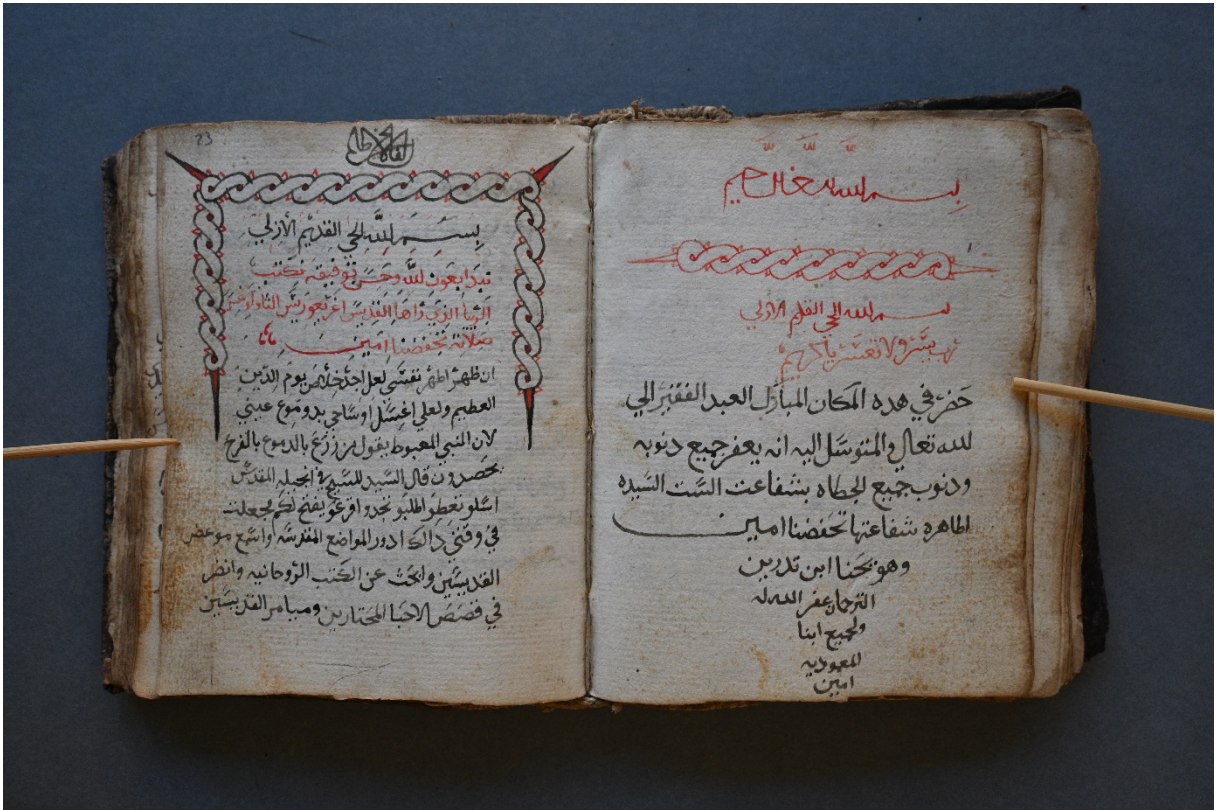 بسم الله الرحمن الرحيم
بسم الله الحي القديم الازلي
يسر ولا تعسر يا كريم
حضر في هده المكان المبارك العبد الفقير الي
لله تعالي والمتوسل اليه انه يعفر جميع دنوبه
ودنوب جميع الخطاه بشفاعت الست السيده
الطاهره شفاعتها تحفضنا امين
وهو يحنا ابن
الترجمان عفر الله له
ولجميع ابنا
المعموديه
امين
23
بسم الله الحي القديم الازلي
نبدا بعون لله وحسن توفيقه نكتب
الرويا الذي راها القديس اغريغوريس
صلاته تحفضنا امين
ان ظهر نفسي لعل اجد خلاص يوم الدين
العطيم ولعلي اغسل اوساخي بدوموع عيني
لان النبي المعبوط يقول بالدموع بالفرح
يحصدون قال السيد المسيح في انجيله المقدس
اسلو تعطو اطلبو تجدو اقرعو يفتح لكم فجعلت
في وقتي دالك ادور المواضع المقدسه واسمع موعض
القديسين وابحت عن الكتب الروحانيه وانضر
في قصص الاحبا المختارين وميامر القديسين